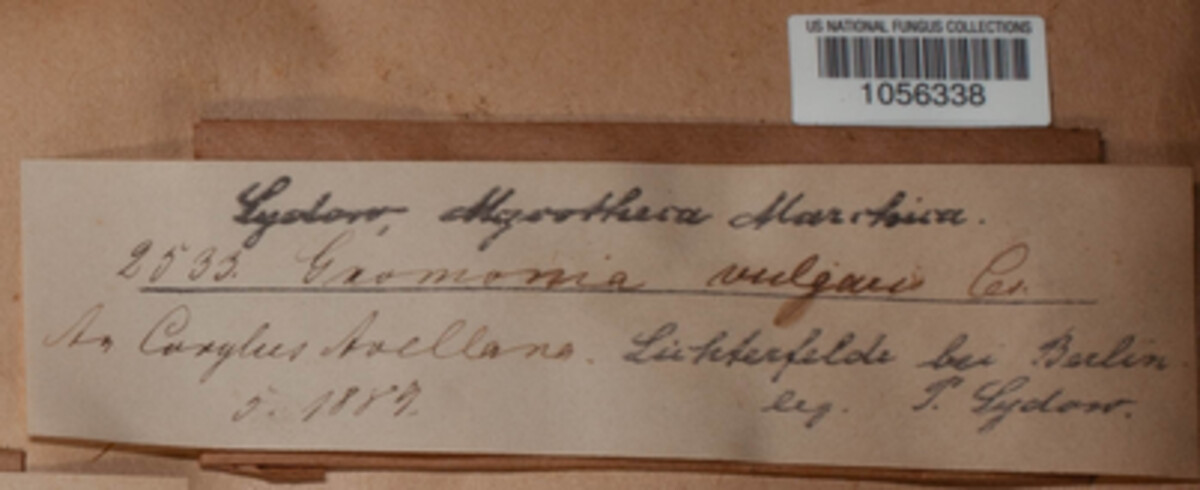 US NATIONAL FUNGUS COLLECTIONS
1056338
Sydow, Mycotheca Marchica.
2533. Gnomonia vulgaris Ces.
An Corylus Avellana. Lichterfelde bei Berlin
5. 1889. leg. P. Sydow.